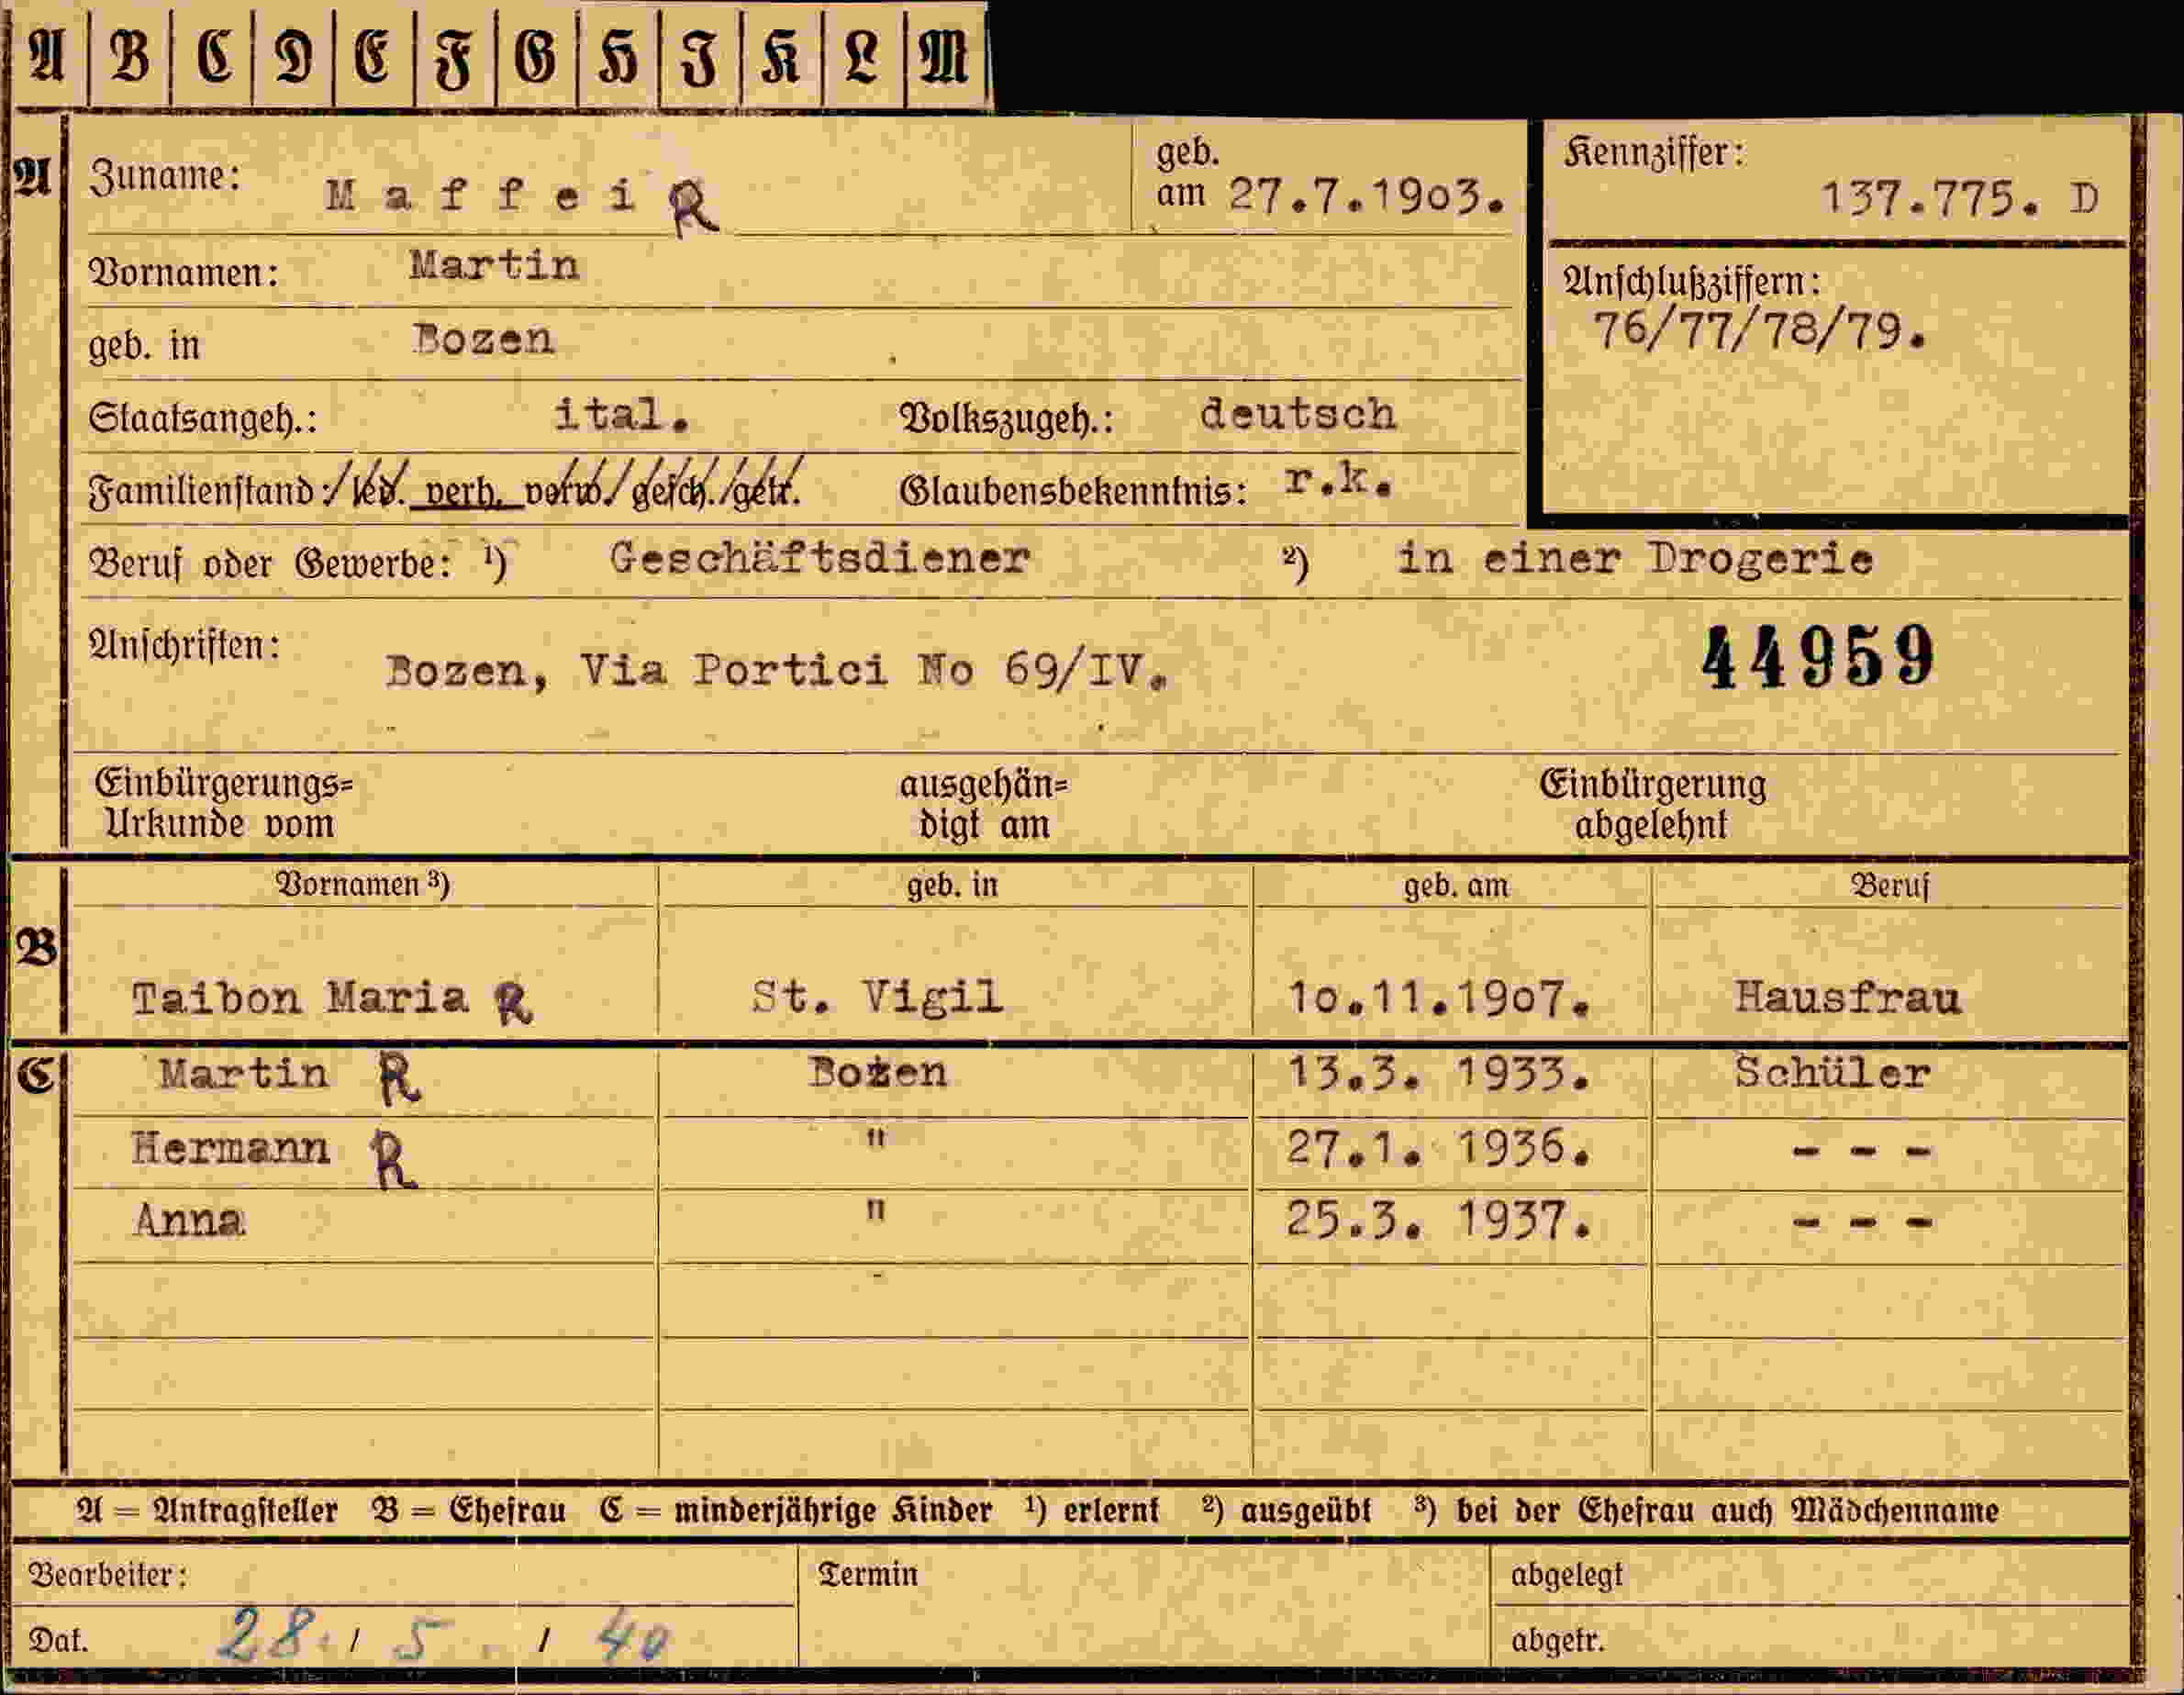 A B C D E F G H I K L M
A Zuname: Maffei R geb. am 27.7.1903. Kennziffer: 137.775. D
Vornamen: Martin
Anschlußziffern: 76/77/78/79.
geb. in Bozen
Staatsangeh.: ital. Volkszugeh.: deutsch
Familienstand: led. verh. verw. gesch. getr. Glaubensbekenntnis: r.k.
Beruf oder Gewerbe: ¹) Geschäftsdiener ²) in einer Drogerie
Anschriften: Bozen, Via Portici No 69/IV. 44959
Einbürgerungs= ausgehän= Einbürgerung
Urkunde vom digt am abgelehnt
Vornamen ³) geb. in geb. am Beruf
B Taibon Maria R St. Vigil 10.11.1907. Hausfrau
C Martin R Bozen 13.3. 1933. Schüler
Hermann R " 27.1. 1936. - - -
Anna " 25.3. 1937. - - -
A = Antragsteller B = Ehefrau C = minderjährige Kinder ¹) erlernt ²) ausgeübt ³) bei der Ehefrau auch Mädchenname
Bearbeiter: Termin abgelegt
Dat. 28. / 5. / 40 abgetr.